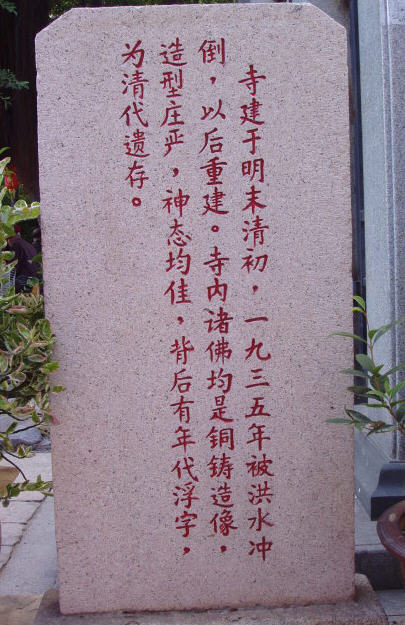 寺建于明末清初，一九三五年被洪水冲
倒，以后重建。寺内诸佛均是铜铸造像，
造型庄严，神态均佳，背后有年代浮字，
为清代遗存。